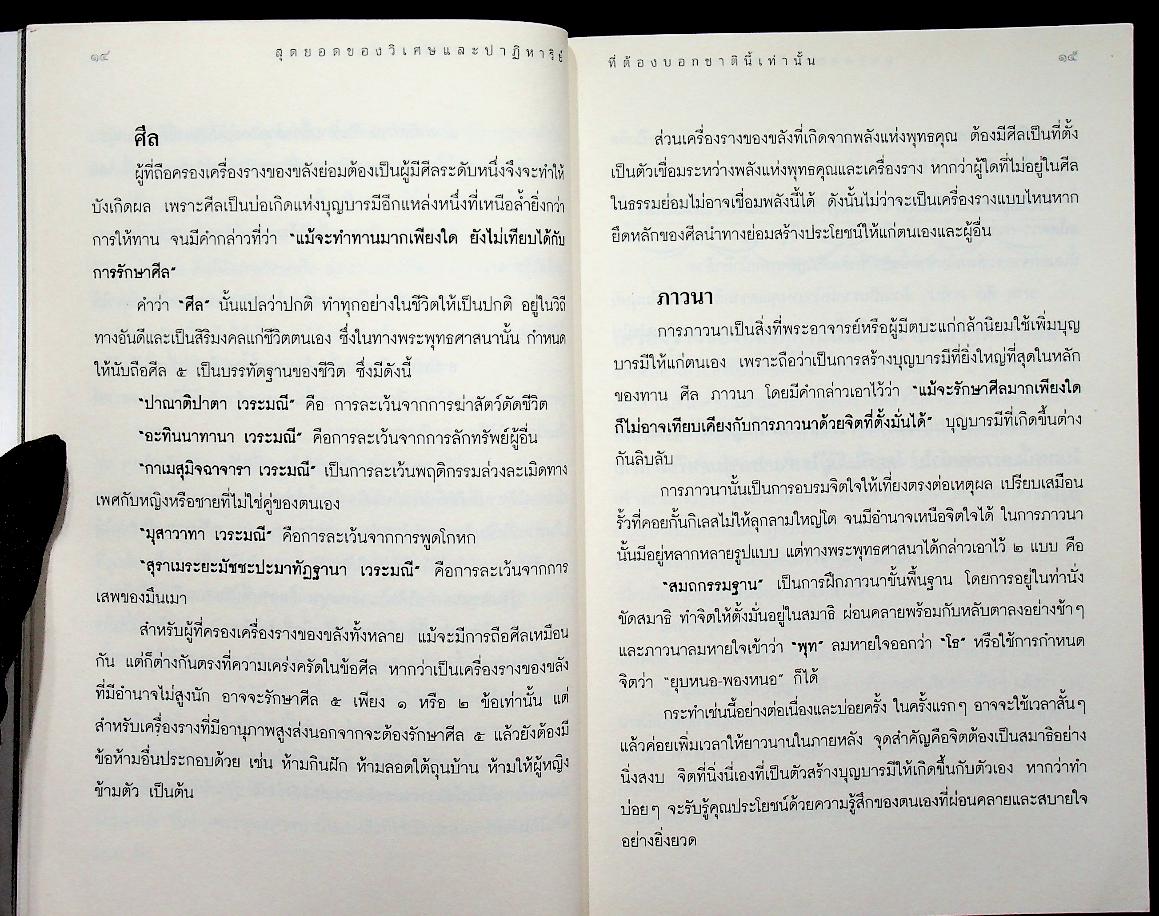 ๑๔
สุดยอดของวิเศษและปาฏิหาริย์
ศีล
ผู้ที่ถือครองเครื่องรางของขลังย่อมต้องเป็นผู้มีศีลระดับหนึ่งจึงจะทำให้
บังเกิดผล เพราะศีลเป็นบ่อเกิดแห่งบุญบารมีอีกแหล่งหนึ่งที่เหนือล้ำยิ่งกว่า
การให้ทาน จนมีคำกล่าวที่ว่า "แม้จะทำทานมากเพียงใด ยังไม่เทียบได้กับ
การรักษาศีล"
คำว่า "ศีล" นั้นแปลว่าปกติ ทำทุกอย่างในชีวิตให้เป็นปกติ อยู่ในวิถี
ทางอันดีและเป็นสิริมงคลแก่ชีวิตตนเอง ซึ่งในทางพระพุทธศาสนานั้น กำหนด
ให้นับถือศีล ๕ เป็นบรรทัดฐานของชีวิต ซึ่งมีดังนี้
"ปาณาติปาตา เวระมณี" คือ การละเว้นจากการฆ่าสัตว์ตัดชีวิต
"อะทินนาทานา เวระมณี" คือการละเว้นจากการลักทรัพย์ผู้อื่น
"กาเมสุมิจฉาจารา เวระมณี" เป็นการละเว้นพฤติกรรมล่วงละเมิดทาง
เพศกับหญิงหรือชายที่ไม่ใช่คู่ของตนเอง
"มุสาวาทา เวระมณี" คือการละเว้นจากการพูดโกหก
"สุราเมระยะมัชชะปะมาทัฏฐานา เวระมณี" คือการละเว้นจากการ
เสพของมึนเมา
สำหรับผู้ที่ครองเครื่องรางของขลังทั้งหลาย แม้จะมีการถือศีลเหมือน
กัน แต่ก็ต่างกันตรงที่ความเคร่งครัดในข้อศีล หากว่าเป็นเครื่องรางของขลัง
ที่มีอำนาจไม่สูงนัก อาจจะรักษาศีล ๕ เพียง ๑ หรือ ๒ ข้อเท่านั้น แต่
สำหรับเครื่องรางที่มีอานุภาพสูงส่งนอกจากจะต้องรักษาศีล ๕ แล้วยังต้องมี
ข้อห้ามอื่นประกอบด้วย เช่น ห้ามกินฝัก ห้ามลอดใต้ถุนบ้าน ห้ามให้ผู้หญิง
ข้ามตัว เป็นต้น
ที่ต้องบอกชาตินี้เท่านั้น
๑๕
ส่วนเครื่องรางของขลังที่เกิดจากพลังแห่งพุทธคุณ ต้องมีศีลเป็นที่ตั้ง
เป็นตัวเชื่อมระหว่างพลังแห่งพุทธคุณและเครื่องราง หากว่าผู้ใดที่ไม่อยู่ในศีล
ในธรรมย่อมไม่อาจเชื่อมพลังนี้ได้ ดังนั้นไม่ว่าจะเป็นเครื่องรางแบบไหนหาก
ยึดหลักของศีลนำทางย่อมสร้างประโยชน์ให้แก่ตนเองและผู้อื่น
ภาวนา
การภาวนาเป็นสิ่งที่พระอาจารย์หรือผู้มีตบะแก่กล้านิยมใช้เพิ่มบุญ
บารมีให้แก่ตนเอง เพราะถือว่าเป็นการสร้างบุญบารมีที่ยิ่งใหญ่ที่สุดในหลัก
ของทาน ศีล ภาวนา โดยมีคำกล่าวเอาไว้ว่า "แม้จะรักษาศีลมากเพียงใด
ก็ไม่อาจเทียบเคียงกับการภาวนาด้วยจิตที่ตั้งมั่นได้" บุญบารมีที่เกิดขึ้นต่าง
กันลิบลับ
การภาวนานั้นเป็นการอบรมจิตใจให้เที่ยงตรงต่อเหตุผล เปรียบเสมือน
รั้วที่คอยกั้นกิเลสไม่ให้ลุกลามใหญ่โต จนมีอำนาจเหนือจิตใจได้ ในการภาวนา
นั้นมีอยู่หลากหลายรูปแบบ แต่ทางพระพุทธศาสนาได้กล่าวเอาไว้ ๒ แบบ คือ
"สมถกรรมฐาน" เป็นการฝึกภาวนาขั้นพื้นฐาน โดยการอยู่ในท่านั่ง
ขัดสมาธิ ทำจิตให้ตั้งมั่นอยู่ในสมาธิ ผ่อนคลายพร้อมกับหลับตาลงอย่างช้าๆ
และภาวนาลมหายใจเข้าว่า "พุท" ลมหายใจออกว่า "โธ" หรือใช้การกำหนด
จิตว่า "ยุบหนอ-พองหนอ" ก็ได้
กระทำเช่นนี้อย่างต่อเนื่องและบ่อยครั้ง ในครั้งแรกๆ อาจจะใช้เวลาสั้นๆ
แล้วค่อยเพิ่มเวลาให้ยาวนานในภายหลัง จุดสำคัญคือจิตต้องเป็นสมาธิอย่าง
นิ่งสงบ จิตที่นิ่งนี่เองที่เป็นตัวสร้างบุญบารมีให้เกิดขึ้นกับตัวเอง หากว่าทำ
บ่อยๆ จะรับรู้คุณประโยชน์ด้วยความรู้สึกของตนเองที่ผ่อนคลายและสบายใจ
อย่างยิ่งยวด